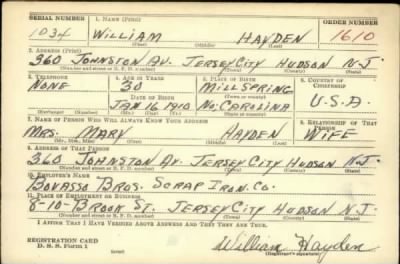 SERIAL NUMBER 1. NAME (Print) ORDER NUMBER
1034 WILLIAM HAYDEN 1610
(First) (Middle) (Last)
2. ADDRESS (Print)
360 JOHNSTON AV. JERSEY CITY HUDSON N.J.
(Number and street or R. F. D. number) (Town) (County) (State)
3. TELEPHONE 4. AGE IN YEARS 5. PLACE OF BIRTH 6. COUNTRY OF CITIZENSHIP
NONE 30 MILL SPRING
DATE OF BIRTH (Town or county) U.S.A.
JAN 16 1910 NO. CAROLINA
(Exchange) (Number) (Mo.) (Day) (Yr.) (State or country)
7. NAME OF PERSON WHO WILL ALWAYS KNOW YOUR ADDRESS 8. RELATIONSHIP OF THAT PERSON
MRS. MARY HAYDEN WIFE
(Mr., Mrs., Miss) (First) (Middle) (Last)
9. ADDRESS OF THAT PERSON
360 JOHNSTON AV. JERSEY CITY HUDSON N.J.
(Number and street or R. F. D. number) (Town) (County) (State)
10. EMPLOYER'S NAME
BOVASSO BROS. SCRAP IRON CO.
11. PLACE OF EMPLOYMENT OR BUSINESS
8-10-BROOK ST. JERSEY CITY HUDSON N.J.
(Number and street or R. F. D. number) (Town) (County) (State)
I AFFIRM THAT I HAVE VERIFIED ABOVE ANSWERS AND THAT THEY ARE TRUE.
REGISTRATION CARD
D. S. S. Form 1 William Hayden
(Registrant's signature)